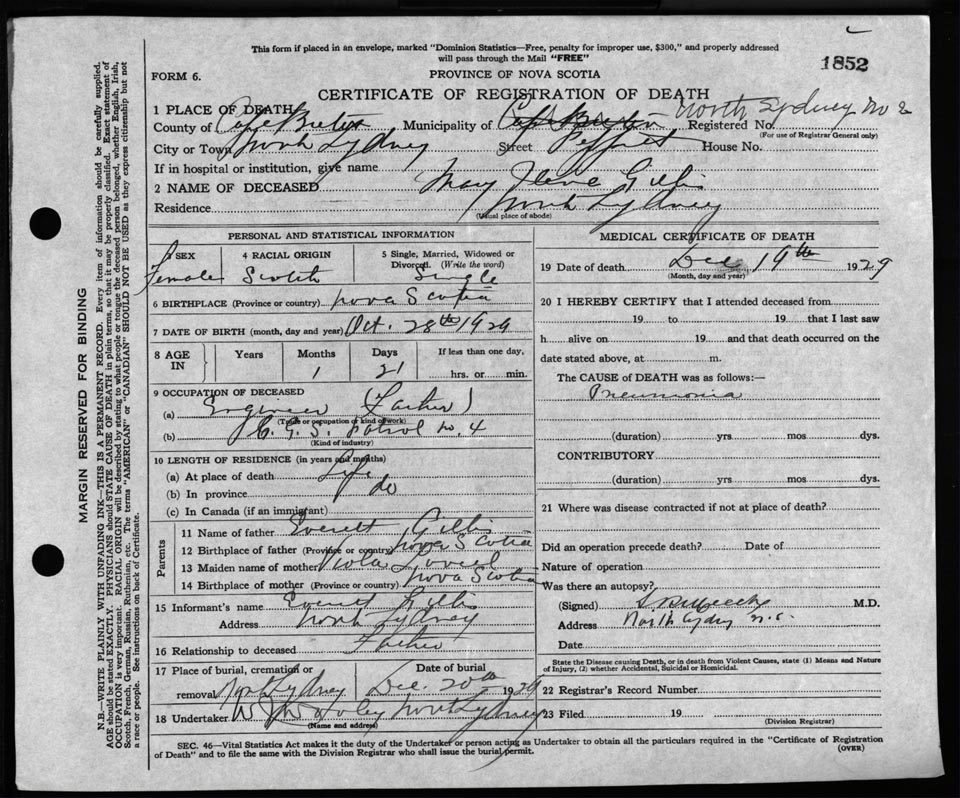 This form if placed in an envelope, marked "Dominion Statistics—Free, penalty for improper use, $300," and properly addressed
will pass through the Mail "FREE"
1852
FORM 6.
PROVINCE OF NOVA SCOTIA
CERTIFICATE OF REGISTRATION OF DEATH
1 PLACE OF DEATH
North Sydney No 2
County of Cape Breton Municipality of Cape Breton Registered No.
(For use of Registrar General only)
City or Town North Sydney Street House No.
If in hospital or institution, give name
2 NAME OF DECEASED May Gillis
Residence North Sydney
(Usual place of abode)
PERSONAL AND STATISTICAL INFORMATION
3 SEX 4 RACIAL ORIGIN 5 Single, Married, Widowed or
Divorced. (Write the word)
Female Scotch Single
6 BIRTHPLACE (Province or country) Nova Scotia
7 DATE OF BIRTH (month, day and year) Oct. 28th 1929
8 AGE IN Years Months Days If less than one day,
1 21 hrs. or min.
9 OCCUPATION OF DECEASED
(a) Engineer (Father)
(Trade or occupation or kind of work)
(b) C.G.S. Patrol no. 4
(Kind of industry)
10 LENGTH OF RESIDENCE (in years and months)
(a) At place of death Life
(b) In province do
(c) In Canada (if an immigrant)
Parents
11 Name of father Everett Gillis
12 Birthplace of father (Province or country) Nova Scotia
13 Maiden name of mother Viola
14 Birthplace of mother (Province or country) Nova Scotia
15 Informant's name Everett Gillis
Address North Sydney
16 Relationship to deceased Father
17 Place of burial, cremation or Date of burial
removal Nor Sydney Dec. 20th 1929
18 Undertaker North Sydney
(Name and address)
MEDICAL CERTIFICATE OF DEATH
19 Date of death Dec 19th 1929
(Month, day and year)
20 I HEREBY CERTIFY that I attended deceased from
19 to 19 that I last saw
h alive on 19 and that death occurred on the
date stated above, at m.
The CAUSE of DEATH was as follows:—
Pneumonia
(duration) yrs mos dys.
CONTRIBUTORY
(duration) yrs mos dys.
21 Where was disease contracted if not at place of death?
Did an operation precede death? Date of
Nature of operation
Was there an autopsy?
(Signed) M.D.
Address North Sydney N.S.
Date
State the Disease causing Death, or in death from Violent Causes, state (1) Means and Nature
of Injury, (2) whether Accidental, Suicidal or Homicidal.
22 Registrar's Record Number
23 Filed 19
(Division Registrar)
SEC. 46—Vital Statistics Act makes it the duty of the Undertaker or person acting as Undertaker to obtain all the particulars required in the "Certificate of Registration
of Death" and to file the same with the Division Registrar who shall issue the burial permit.
(OVER)
MARGIN RESERVED FOR BINDING
N.B.—WRITE PLAINLY WITH UNFADING INK—THIS IS A PERMANENT RECORD. Every item of information should be carefully supplied.
AGE should be stated EXACTLY. PHYSICIANS should STATE CAUSE OF DEATH in plain terms, so that it may be properly classified. Exact statement of
OCCUPATION is very important. RACIAL ORIGIN will be described by stating to what people or tongue the deceased person belonged, whether English, Irish,
Scotch, French, German, Russian, Ruthenian, etc. The terms "AMERICAN" or "CANADIAN" SHOULD NOT BE USED as they express citizenship but not
a race or people. See instructions on back of Certificate.